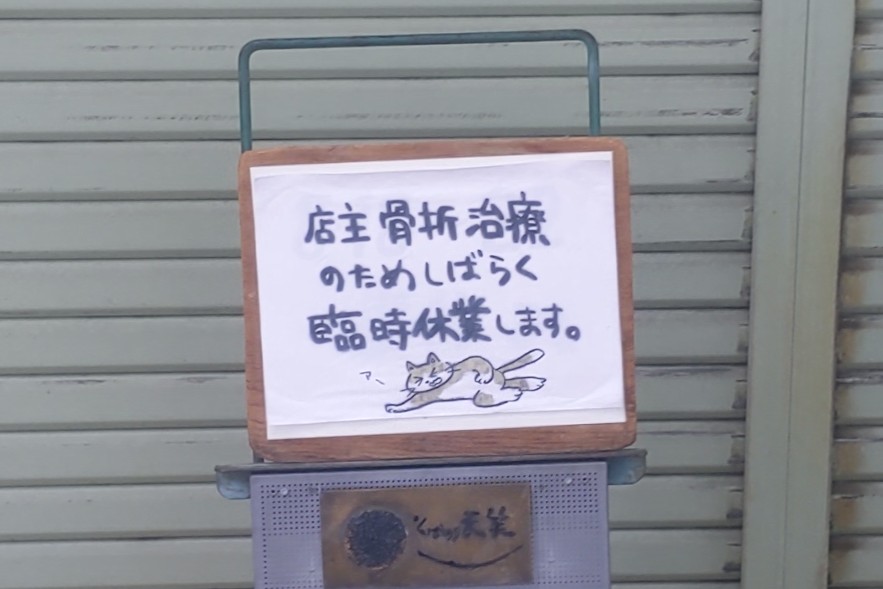 店主骨折治療
のためしばらく
臨時休業します。
アー